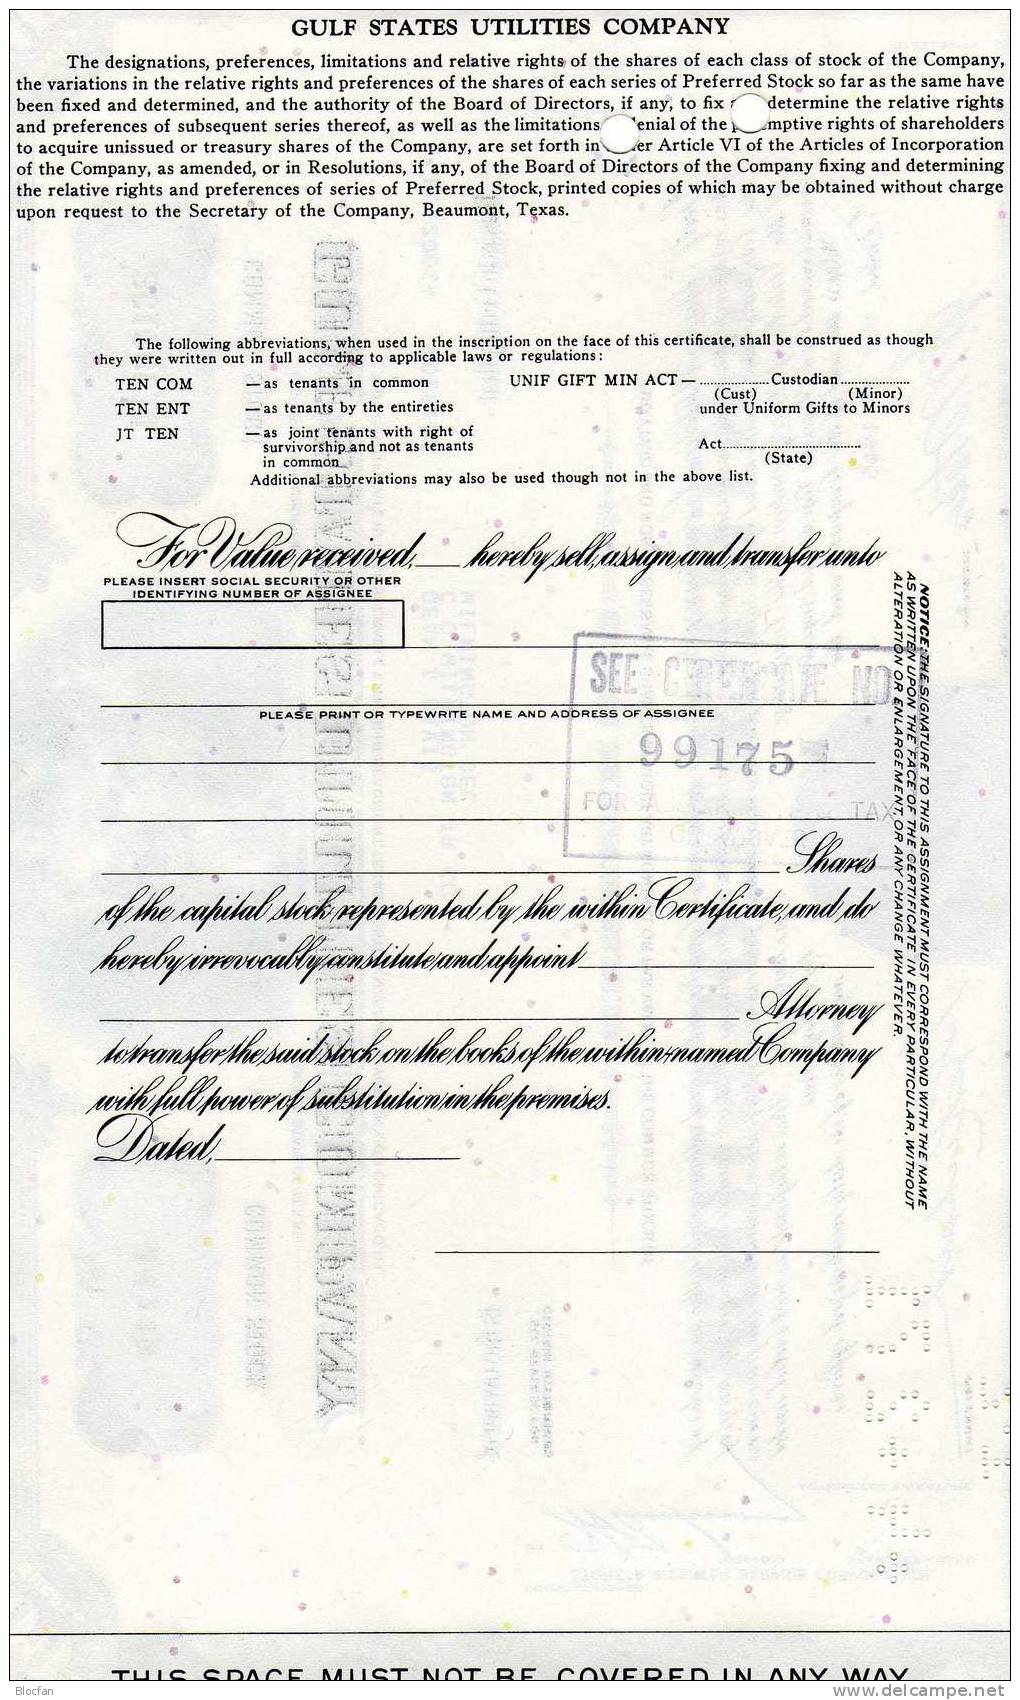 GULF STATES UTILITIES COMPANY
The designations, preferences, limitations and relative rights of the shares of each class of stock of the Company,
the variations in the relative rights and preferences of the shares of each series of Preferred Stock so far as the same have
been fixed and determined, and the authority of the Board of Directors, if any, to fix determine the relative rights
and preferences of subsequent series thereof, as well as the limitations enial of the mptive rights of shareholders
to acquire unissued or treasury shares of the Company, are set forth in er Article VI of the Articles of Incorporation
of the Company, as amended, or in Resolutions, if any, of the Board of Directors of the Company fixing and determining
the relative rights and preferences of series of Preferred Stock, printed copies of which may be obtained without charge
upon request to the Secretary of the Company, Beaumont, Texas.
The following abbreviations, when used in the inscription on the face of this certificate, shall be construed as though
they were written out in full according to applicable laws or regulations:
TEN COM —as tenants in common UNIF GIFT MIN ACT— Custodian
(Cust) (Minor)
TEN ENT —as tenants by the entireties under Uniform Gifts to Minors
JT TEN —as joint tenants with right of
survivorship and not as tenants Act
in common (State)
Additional abbreviations may also be used though not in the above list.
For Value received, hereby sell, assign and transfer unto
PLEASE INSERT SOCIAL SECURITY OR OTHER
IDENTIFYING NUMBER OF ASSIGNEE
SEE CERTIFICATE NO
PLEASE PRINT OR TYPEWRITE NAME AND ADDRESS OF ASSIGNEE
99175
FOR TAX
Shares
of the capital stock represented by the within Certificate, and do
hereby irrevocably constitute and appoint
Attorney
to transfer the said stock on the books of the within-named Company
with full power of substitution in the premises.
Dated,
NOTICE: THE SIGNATURE TO THIS ASSIGNMENT MUST CORRESPOND WITH THE NAME
AS WRITTEN UPON THE FACE OF THE CERTIFICATE IN EVERY PARTICULAR, WITHOUT
ALTERATION OR ENLARGEMENT, OR ANY CHANGE WHATEVER.
THIS SPACE MUST NOT BE COVERED IN ANY WAY
Blocfan
www.delcampe.net